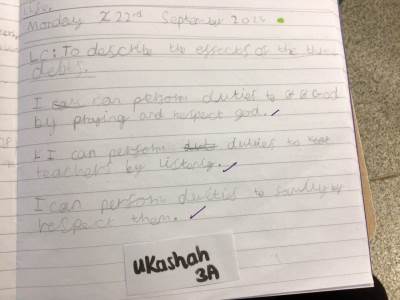 Monday 22nd September 2025
LC: To describe the effects of the three
debts.
I can perform duties to God
by praying and respect god.
I can perform duties to
teachers by listenig.
I can perform duties to family by
respect them.
Ukashah
3A